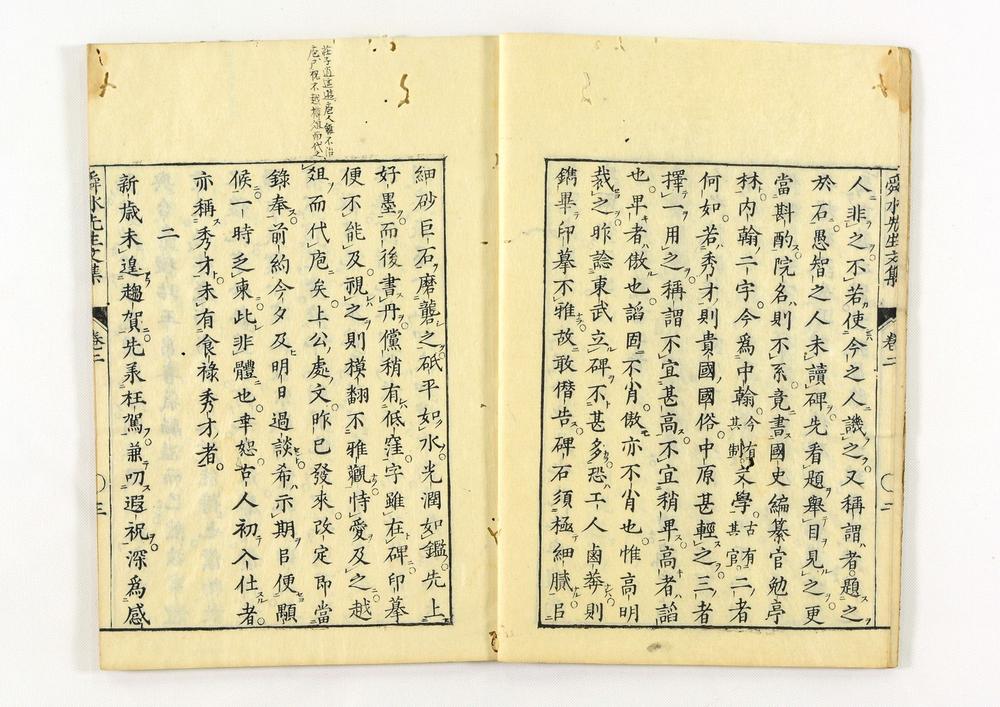 舜水先生文集 卷二 三
人非之不若使今之人譏之又稱謂者題之
於石愚智之人未讀碑先看題舉目見之更
當斟酌院名則不系竟書國史編纂官勉亭
林內翰二字今爲中翰今有其制文學古有其官二者
何如若秀才則貴國國俗中原甚輕之三者
擇一用之稱謂不宜甚高不宜稍卑高者諂
也卑者傲也諂固不肖傲亦不肖也惟高明
裁之昨諗東武立碑不甚多恐工人鹵莽則
鐫畢印摹不雅故敢僭告碑石須極細膩㠯
細砂巨石磨礱之砥平如水光潤如鑑先上
好墨而後書丹儻稍有低窪字雖在碑印摹
便不能及視之則模翻不雅觀恃愛及之越
莊子逍遥遊庖人雖不治
庖尸祝不越樽俎而代之
俎而代庖矣上公處文昨已發來改定即當
錄奉前約今夕及明日過談希示期㠯便顒
候一時乏柬此非體也幸恕古人初入仕者
亦稱秀才未有食祿秀才者
二
新歲未遑趨賀先承枉駕兼叨遐祝深爲感
舜水先生文集 卷二 三